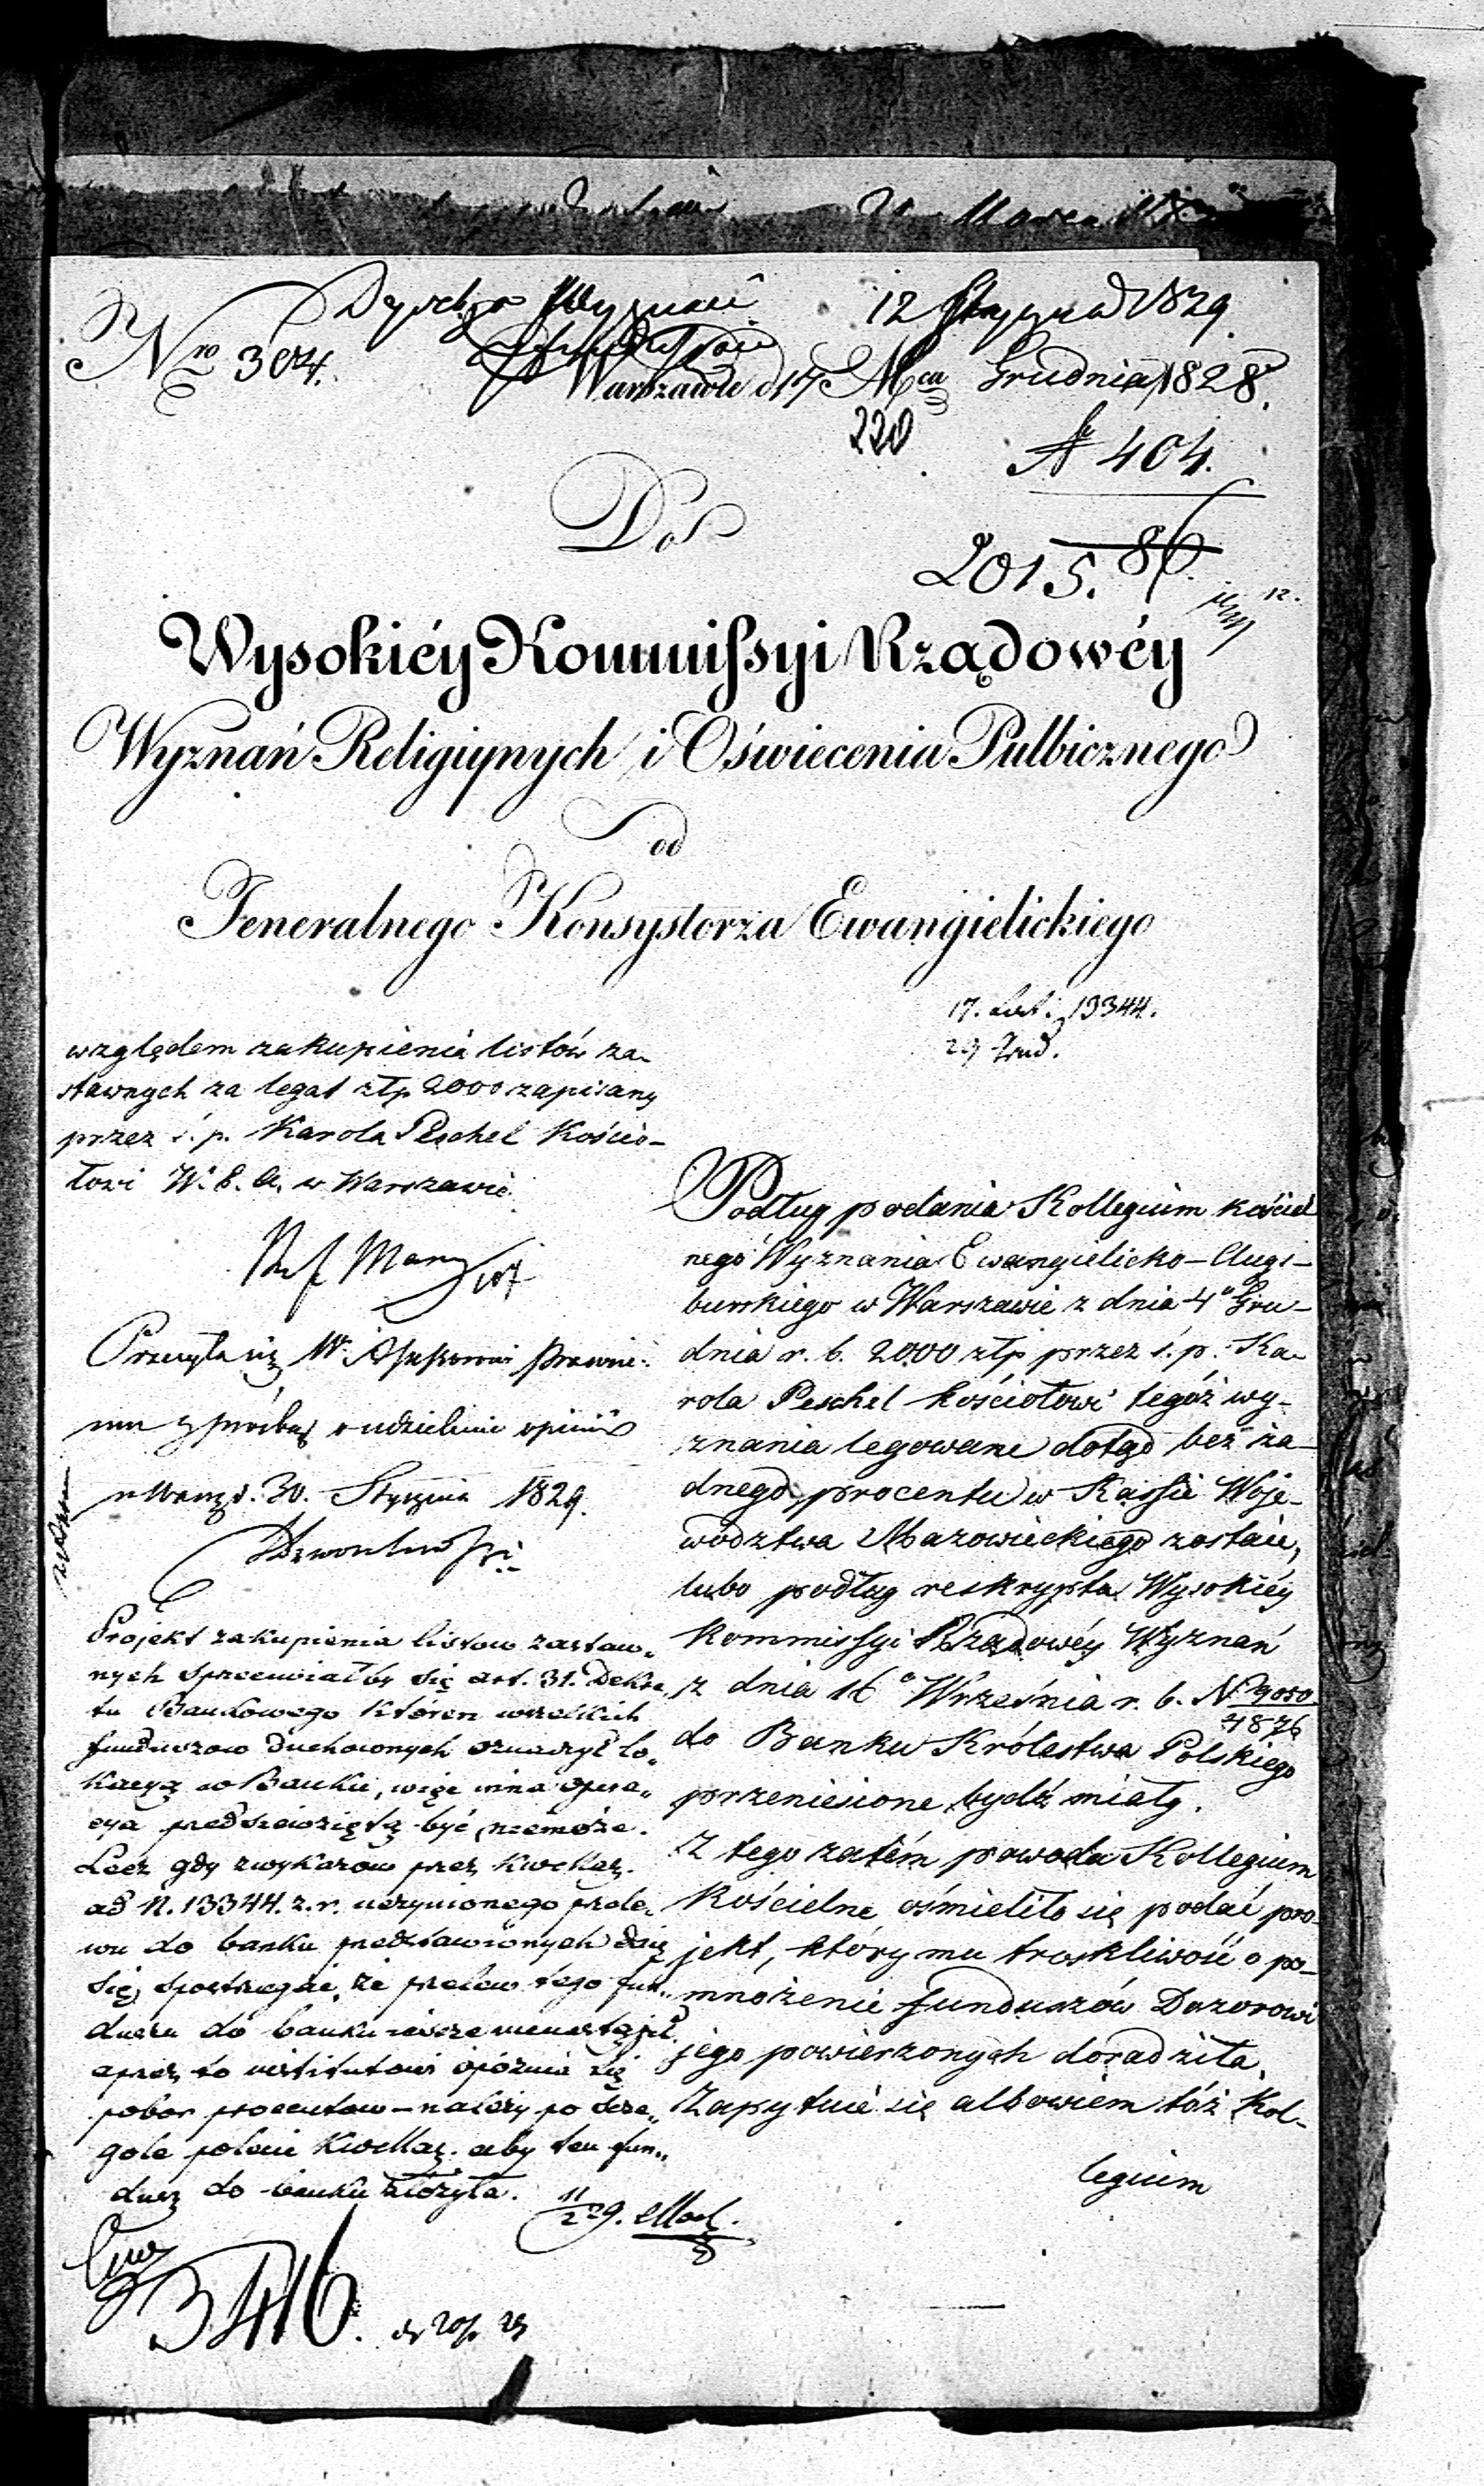 12 Stycznia 1829
Nro 304.
Warszawie d 17 Mca Grudnia 1828.
220
A 404.
Do
2015. 86.
12.
Wysokiéy Kommissyi Rządowéy
Wyznań Religiynych i Oświecenia Pulbicznego
od
Jeneralnego Konsystorza Ewangielickiego
17. List. 13344.
29 Grud.
względem zakupienia listów za-
stawnych za legat złp 2000 zapisany
przez ś. p. Karola Peschel Kościo-
łowi W. E. A. w Warszawie.
Przesyła się W. Assessorowi Prawne-
mu z prośbą o udzielenie opinii
w Warsz. d. 30. Stycznia 1829.
Projekt zakupienia listow zastaw-
nych sprzeciwiałby się art. 31. Dekre-
tu Bankowego któren wszelkich
funduszow duchownych oznaczył lo-
kacyą w Banku, więc inna opera-
cya przedsięwziętą być niemoże.
Lecz gdy z wykazow przez
ad N. 13344. z. r. uczynionego przele-
wu do banku przedstawionych daie
się spostrzegać, że przelew tego fun-
duszu do banku ieszcze nienastąpił.
a przez to institutowi opóźnia się
pobor procentow – należy po szcze-
gole polecić aby ten fun-
dusz do banku złożyła.
11/2 29.
3416.
Podług podania Kollegium kościel
nego Wyznania Ewangielicko-Augs-
burskiego w Warszawie z dnia 4o Gru-
dnia r. b. 2000 złp przez ś. p. Ka-
rola Peschel kościołowi tegóż wy-
znania legowane dotąd bez ża-
dnego procentu w Kassie Woje-
wództwa Mazowieckiego zostaie,
lubo podług reskryptu Wysokiéy
Kommissyi Rządowéy Wyznań
z dnia 16o Września r. b. No 9050/4876
do Banku Królestwa Polskiego
przeniesione bydź miały.
Z tego zatém powodu Kollegium
Kościelne ośmieliło się podać pro-
jekt, który mu troskliwość o po-
mnożenie funduszów Dozorowi
jego powierzonych doradziła.
Zapytuie się albowiem tóż Kol-
legium